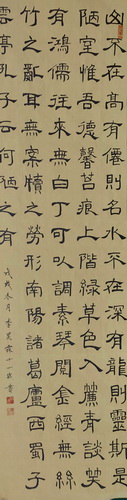 山不在高有僊則名水不在深有龍則靈斯是
陋室惟吾德馨苔痕上階綠草色入簾青談笑
有鴻儒往來無白丁可以調素琴閱金經無絲
竹之亂耳無案牘之勞形南陽諸葛廬西蜀子
雲亭孔子云何陋之有
戊戌冬月李